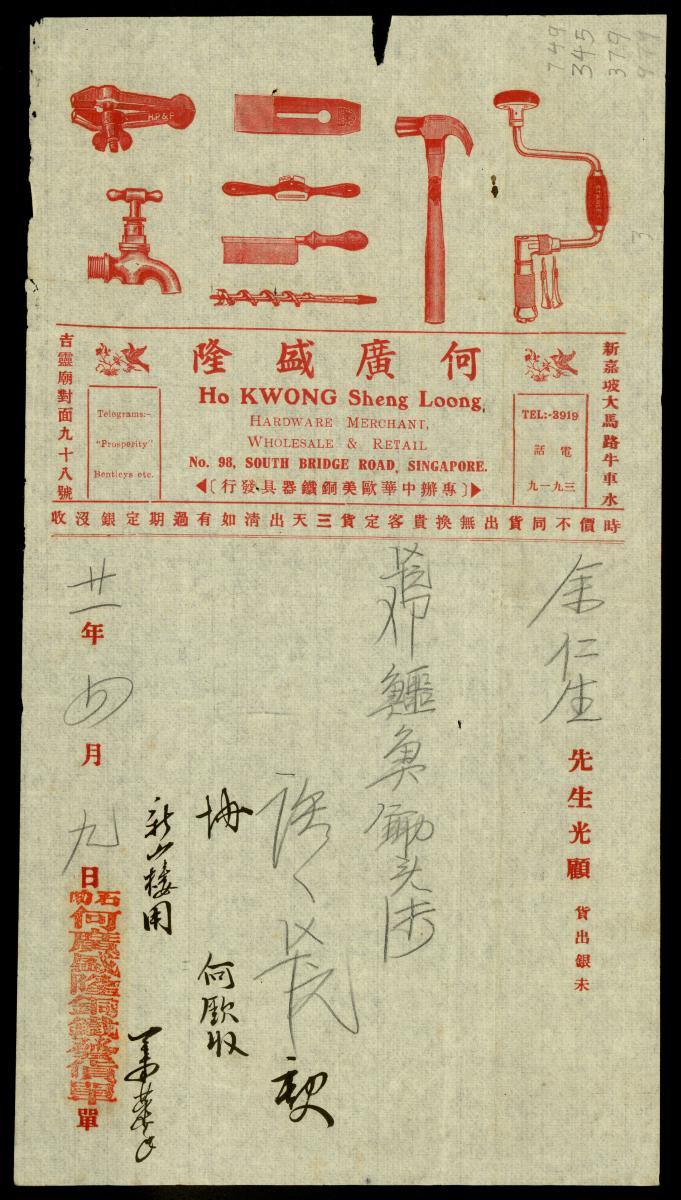 749
345
379
H.P & F
3
何廣盛隆
Ho KWONG Sheng Loong,
HARDWARE MERCHANT,
WHOLESALE & RETAIL
No. 98, SOUTH BRIDGE ROAD, SINGAPORE.
專辦中華歐美銅鐵器具發行
新嘉坡大馬路牛車水
吉靈廟對面九十八號
TEL:-3919
電話
三九一九
Telegrams:-
"Prosperity"
Bentleys etc.
時價不同貨出無換貴客定貨三天出清如有過期定銀沒收
余仁生先生光顧 貨出銀未
鱷魚鋤頭
何歐收
新山樓用
廿一年四月九日
單